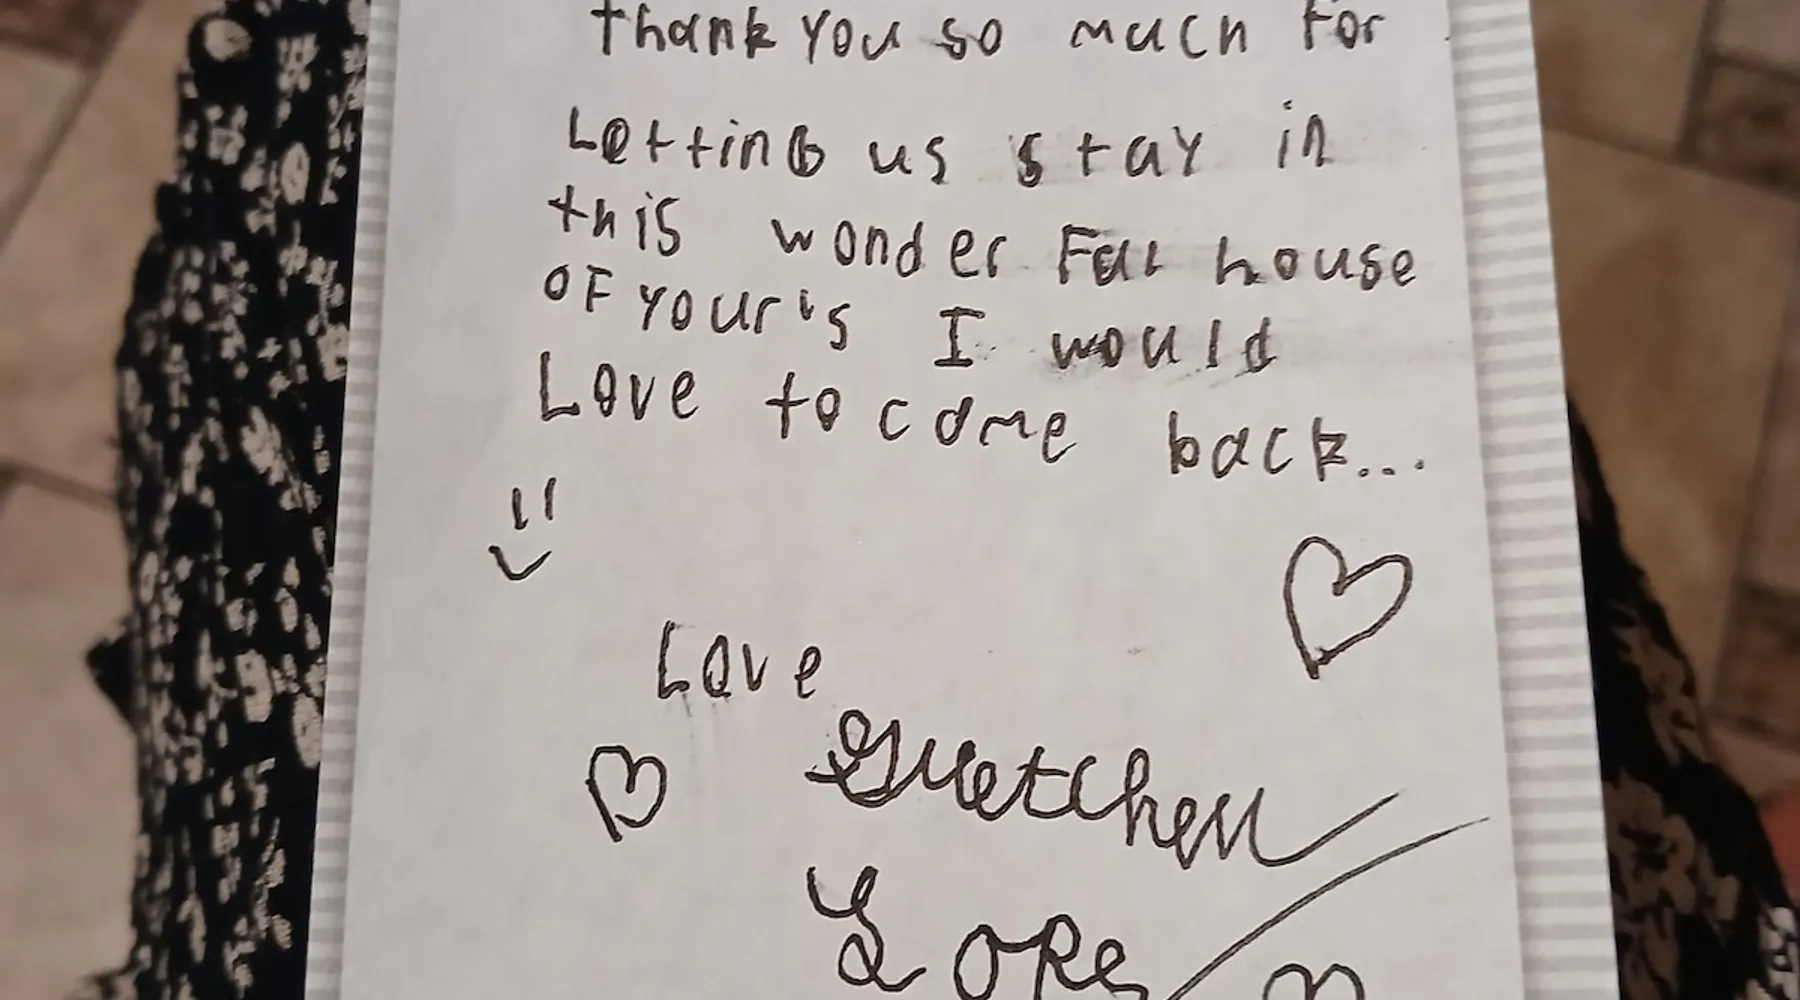 thank you so much for
Letting us stay in
this wonder Ful house
oF your's I would
Love to come back...
Love
Gretchen